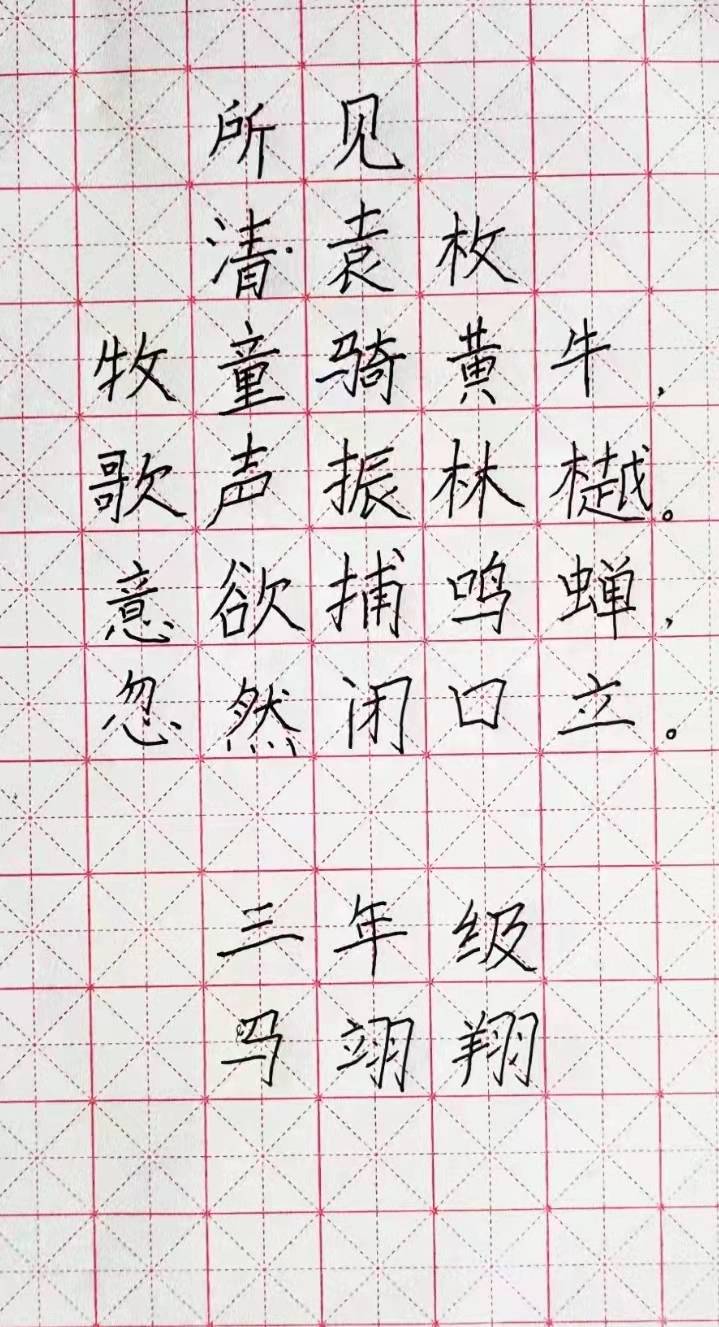 所见
清·袁枚
牧童骑黄牛，
歌声振林樾。
意欲捕鸣蝉，
忽然闭口立。
三年级
马翊翔